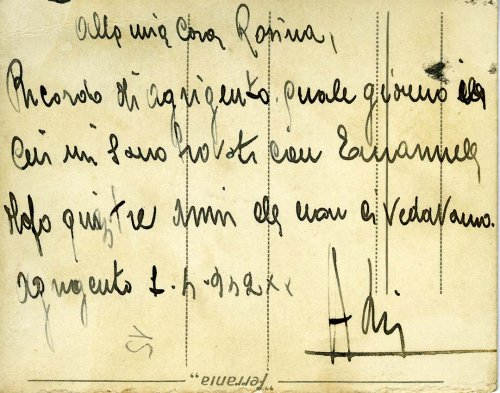 Alla mia Cara Rosina,
Ricordo di agrigento quale giorno in
Cui mi Sono trovati con Emanuele
dopo quattre Anni che non ci Vedavamo.
agrigento 1.5.942 xx
15
"ferrania"